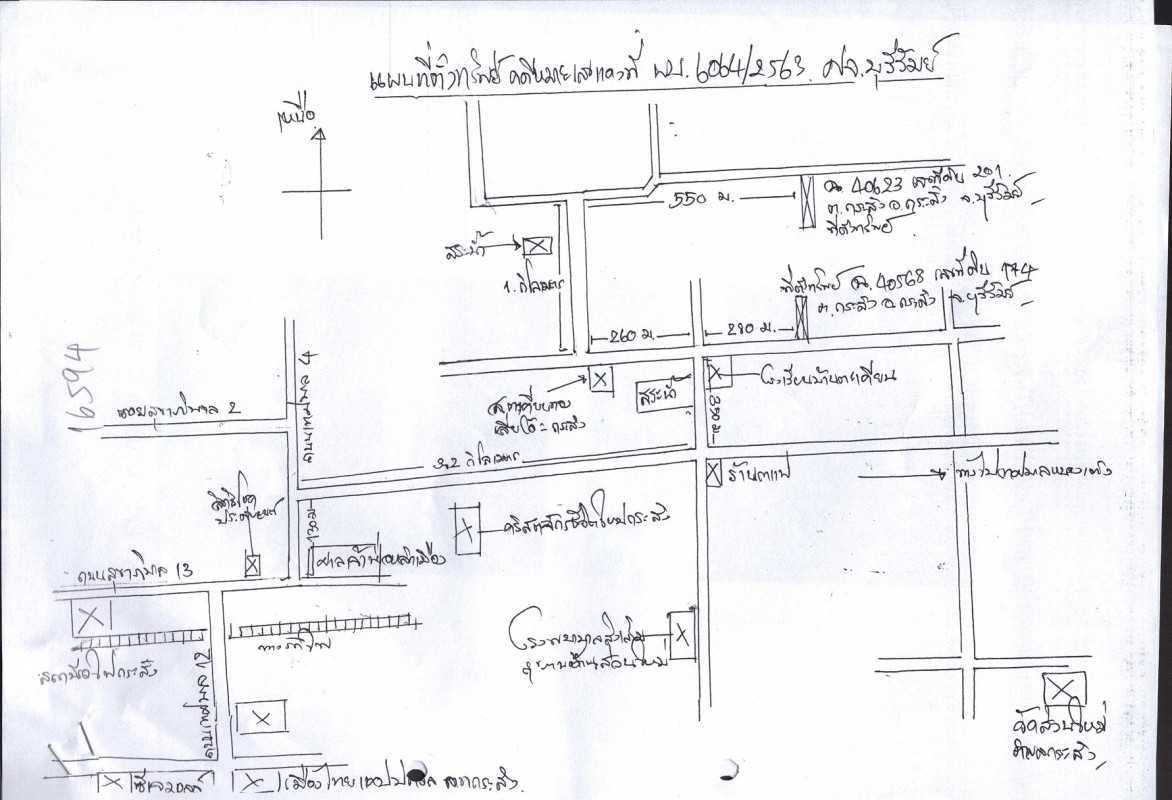 แผนที่ตั้งทรัพย์ คดีหมายเลขแดงที่ ผบ.6064/2563 ศจ.บุรีรัมย์
เหนือ
550 ม.
ฉ. 40623 เลขที่ดิน 201
ต.กระสัง อ.กระสัง จ.บุรีรัมย์
ที่ตั้งทรัพย์
สระน้ำ
1. กิโลเมตร
ที่ตั้งทรัพย์ ฉ. 40568 เลขที่ดิน 174
ต.กระสัง อ.กระสัง จ.บุรีรัมย์
260 ม.
280 ม.
16594
สระน้ำ
โรงเรียนบ้านตะเคียน
350 ม.
ซอยสุขาภิบาล 2
กระสัง
กิโลเมตร
ร้านกาแฟ
130 ม.
คริสตจักรชีวิตใหม่กระสัง
ศาลเจ้าพ่อหลักเมือง
ถนนสุขาภิบาล 13
ทางรถไฟ
สถานีรถไฟกระสัง
ถนนเทศบาล 12
โรงพยาบาลส่งเสริม
สุขภาพบ้านสวนใหม่
วัดสวนใหม่
อำเภอกระสัง
เมืองไทยแคปปิตอล สาขากระสัง